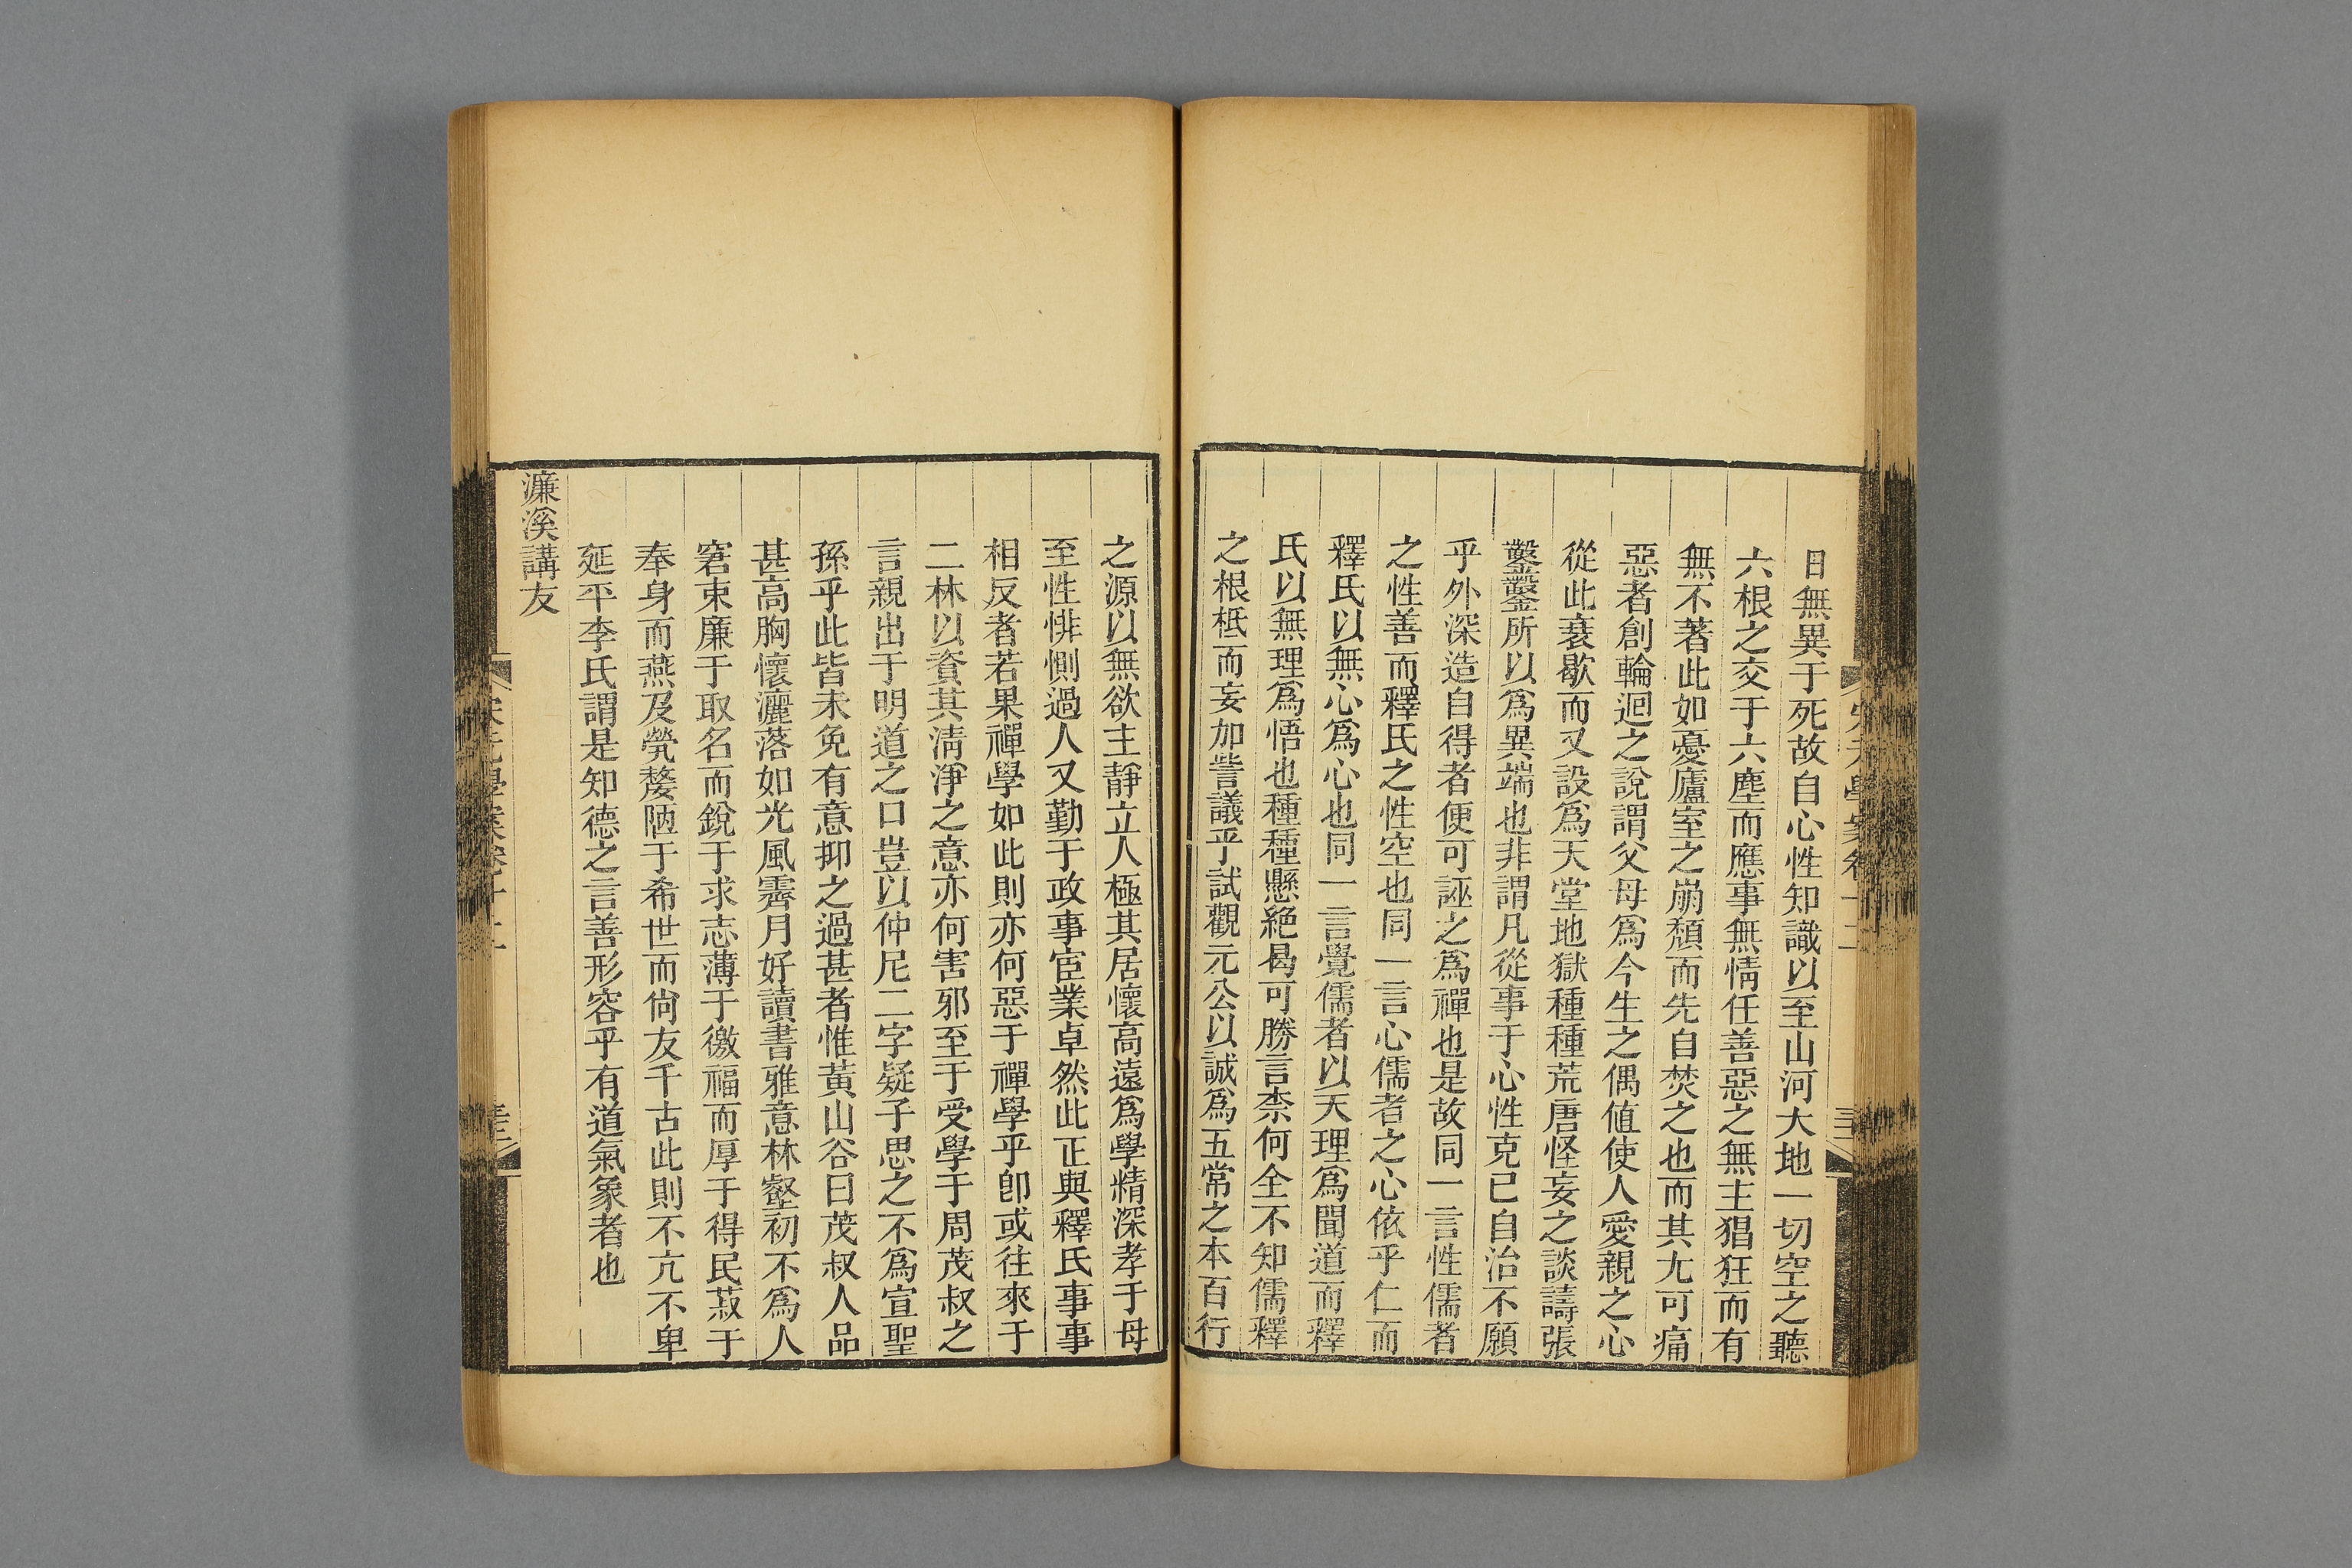 日無異于死故自心性知識以至山河大地一切空之聽
六根之交于六塵而應事無情任善惡之無主猖狂而有
無不著此如憂廬室之崩頽而先自焚之也而其尢可痛
惡者創輪迴之說謂父母爲今生之偶值使人愛親之心
從此衰歇而又設爲天堂地獄種種荒唐怪妄之談譸張
鑿鑿所以爲異端也非謂凡從事于心性克已自治不願
乎外深造自得者便可誣之爲禪也是故同一言性儒者
之性善而釋氏之性空也同一言心儒者之心依乎仁而
釋氏以無心爲心也同一言覺儒者以天理爲聞道而釋
氏以無理爲悟也種種懸絕曷可勝言柰何全不知儒釋
之根柢而妄加訾議乎試觀元公以誠爲五常之本百行
之源以無欲主靜立人極其居懷高遠爲學精深孝于母
至性悱惻過人又勤于政事宦業卓然此正與釋氏事事
相反者若果禪學如此則亦何惡于禪學乎卽或往來于
二林以資其淸淨之意亦何害邪至于受學于周茂叔之
言親出于明道之口豈以仲尼二字疑子思之不爲宣聖
孫乎此皆未免有意抑之過甚者惟黃山谷曰茂叔人品
甚高胸懷灑落如光風霽月好讀書雅意林壑初不爲人
窘束廉于取名而銳于求志薄于徼福而厚于得民菽于
奉身而燕及煢嫠陋于希世而尙友千古此則不亢不卑
延平李氏謂是知德之言善形容乎有道氣象者也
濂溪講友